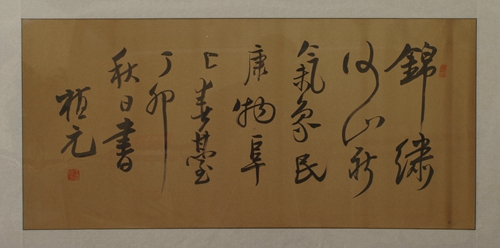 錦繡
河山新
氣象民
康物阜
上春臺
丁卯
秋日書
元